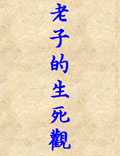 老子的生死觀